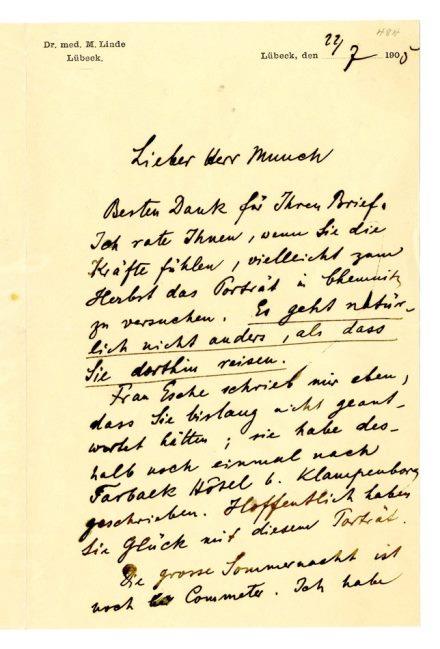 H84
Dr. med. M. Linde
Lübeck.
Lübeck, den 22/7 1905
Lieber Herr Munch
Besten Dank für Ihren Brief.
Ich rate Ihnen, wenn Sie die
Kräfte fühlen, vielleicht zum
Herbst das Porträt in Chemnitz
zu versuchen. Es geht natür-
lich nicht anders, als dass
Sie dorthin reisen.
Frau Esche schrieb mir eben,
dass Sie bislang nicht geant-
wortet hätten; sie habe des-
halb noch einmal nach
Farbaek Hôsel b. Klampenborg
geschrieben. Hoffentlich haben
Sie Glück mit diesem Porträt.
Die grosse Sommernacht ist
noch bei Commeter. Ich habe